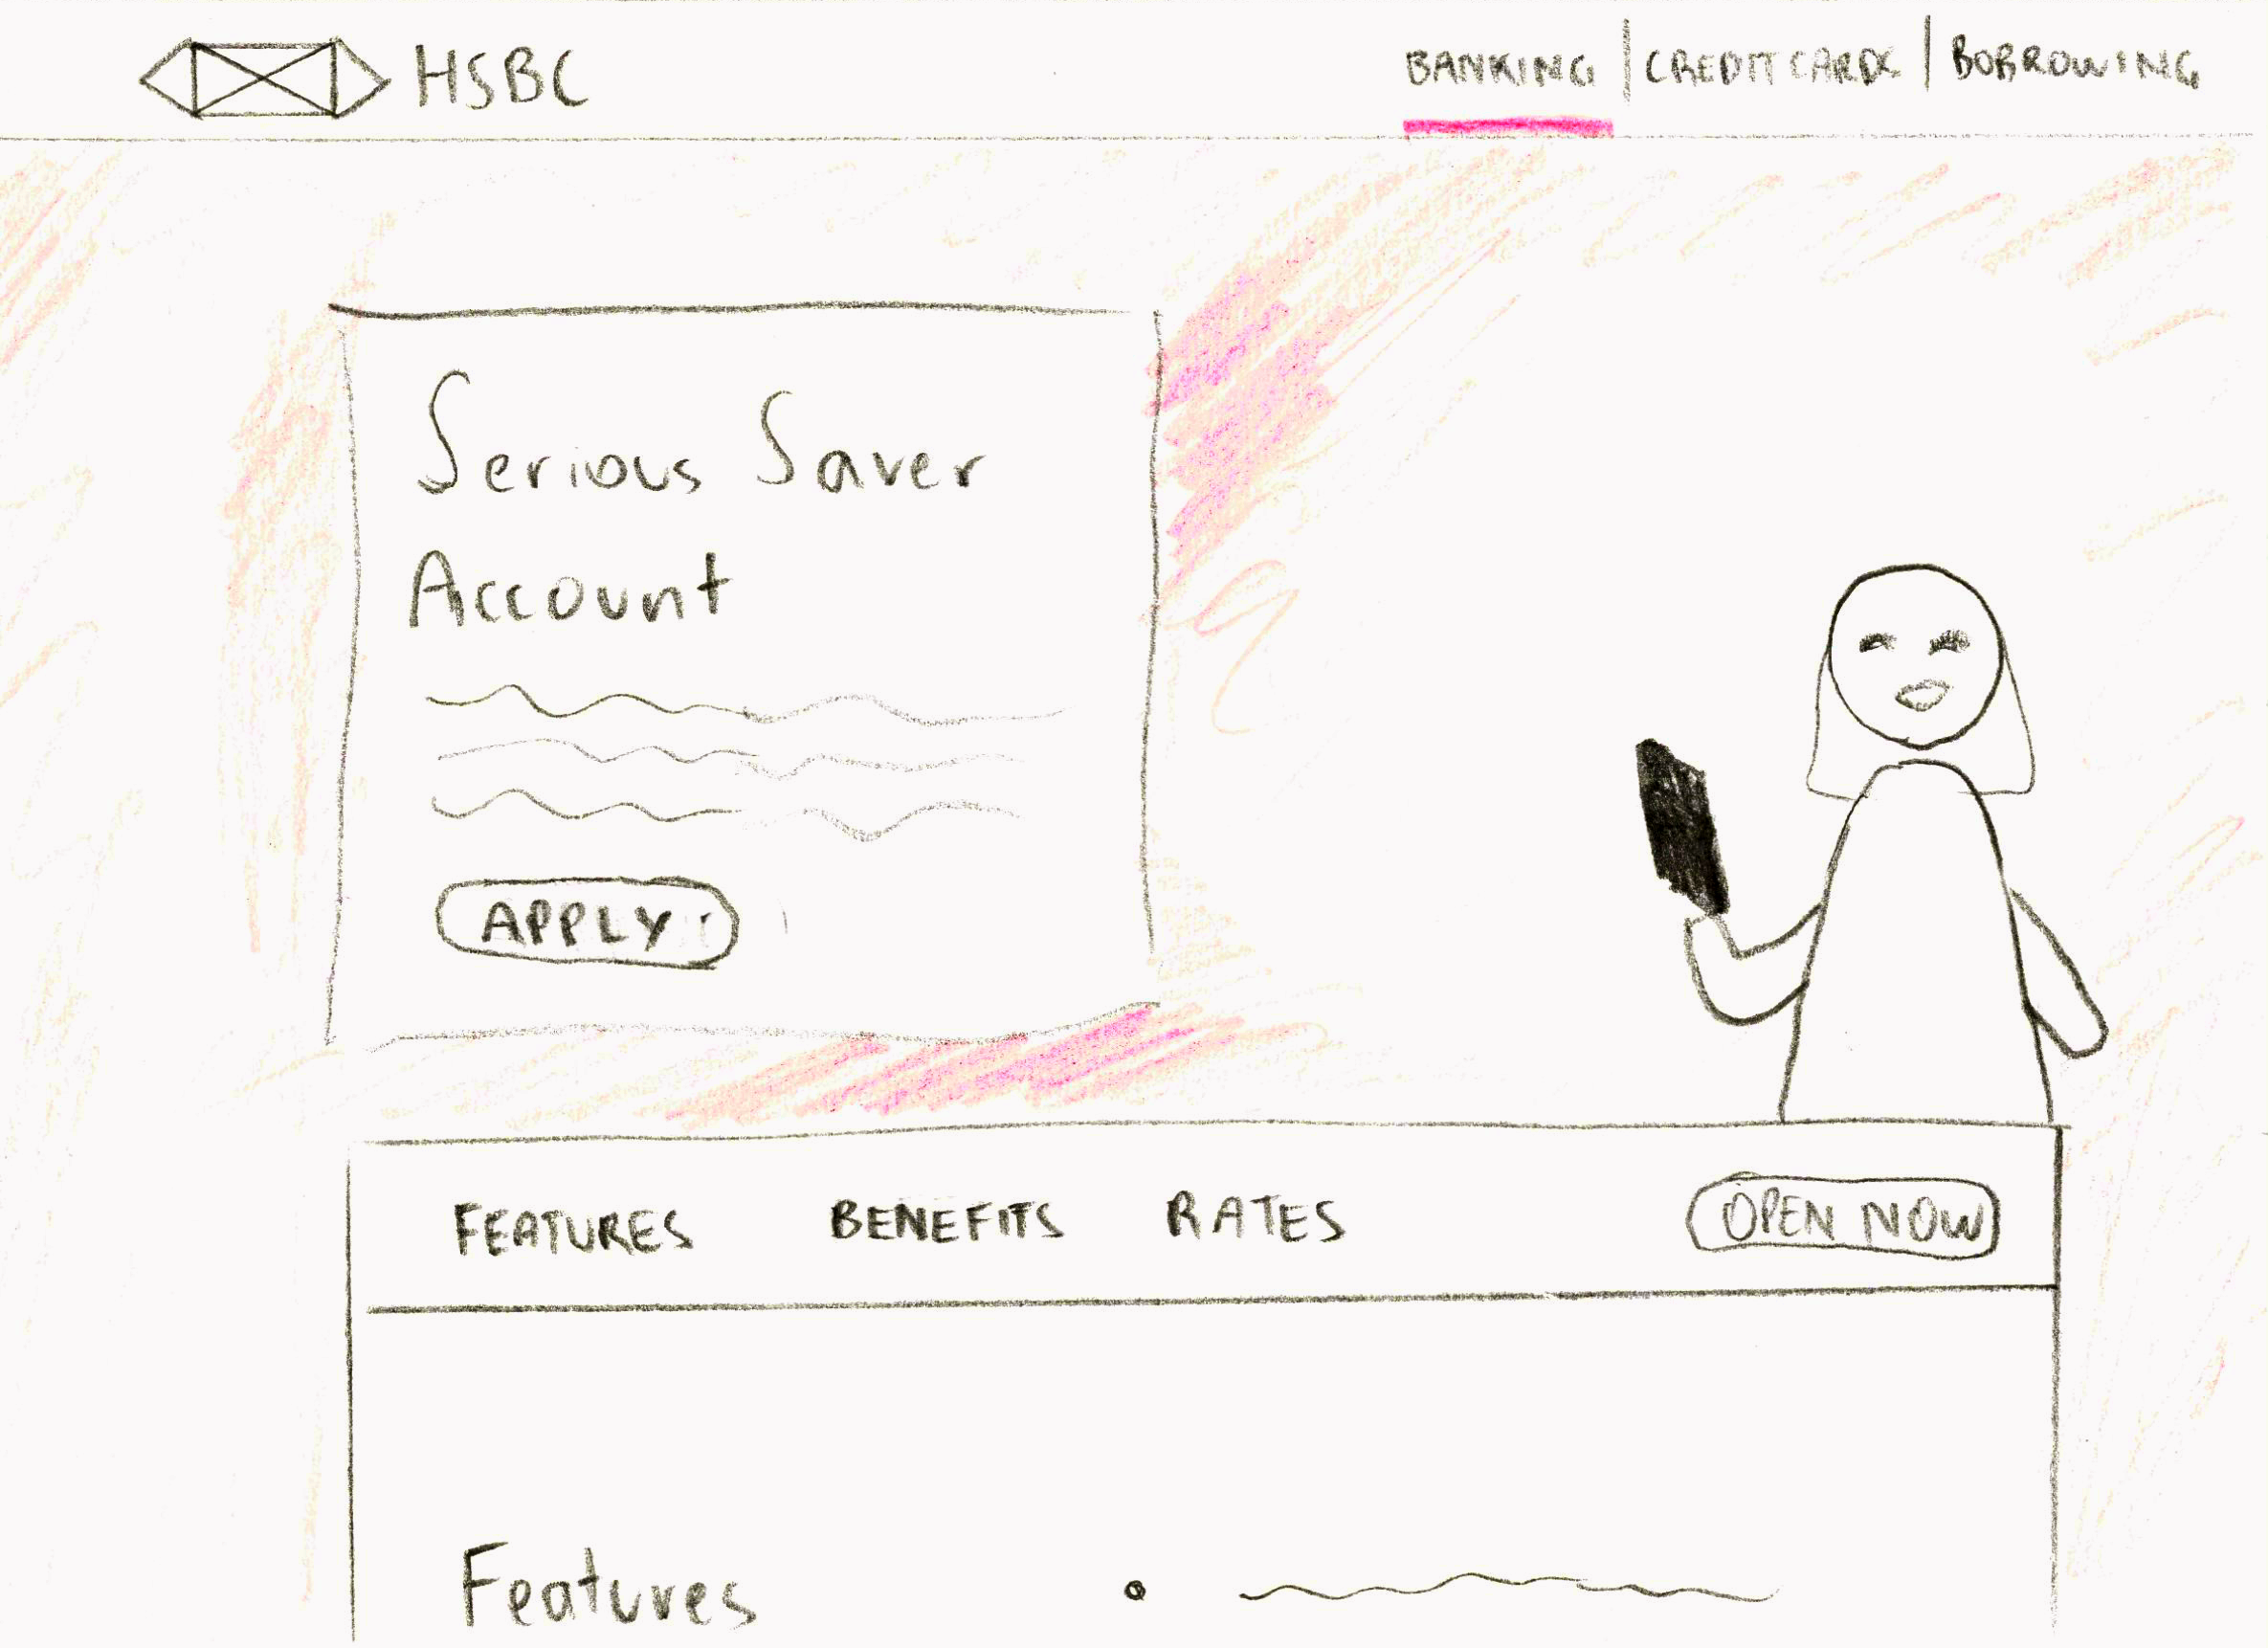 HSBC
BANKING | CREDIT CARDS | BORROWING
Serious Saver
Account
APPLY
FEATURES BENEFITS RATES OPEN NOW
Features